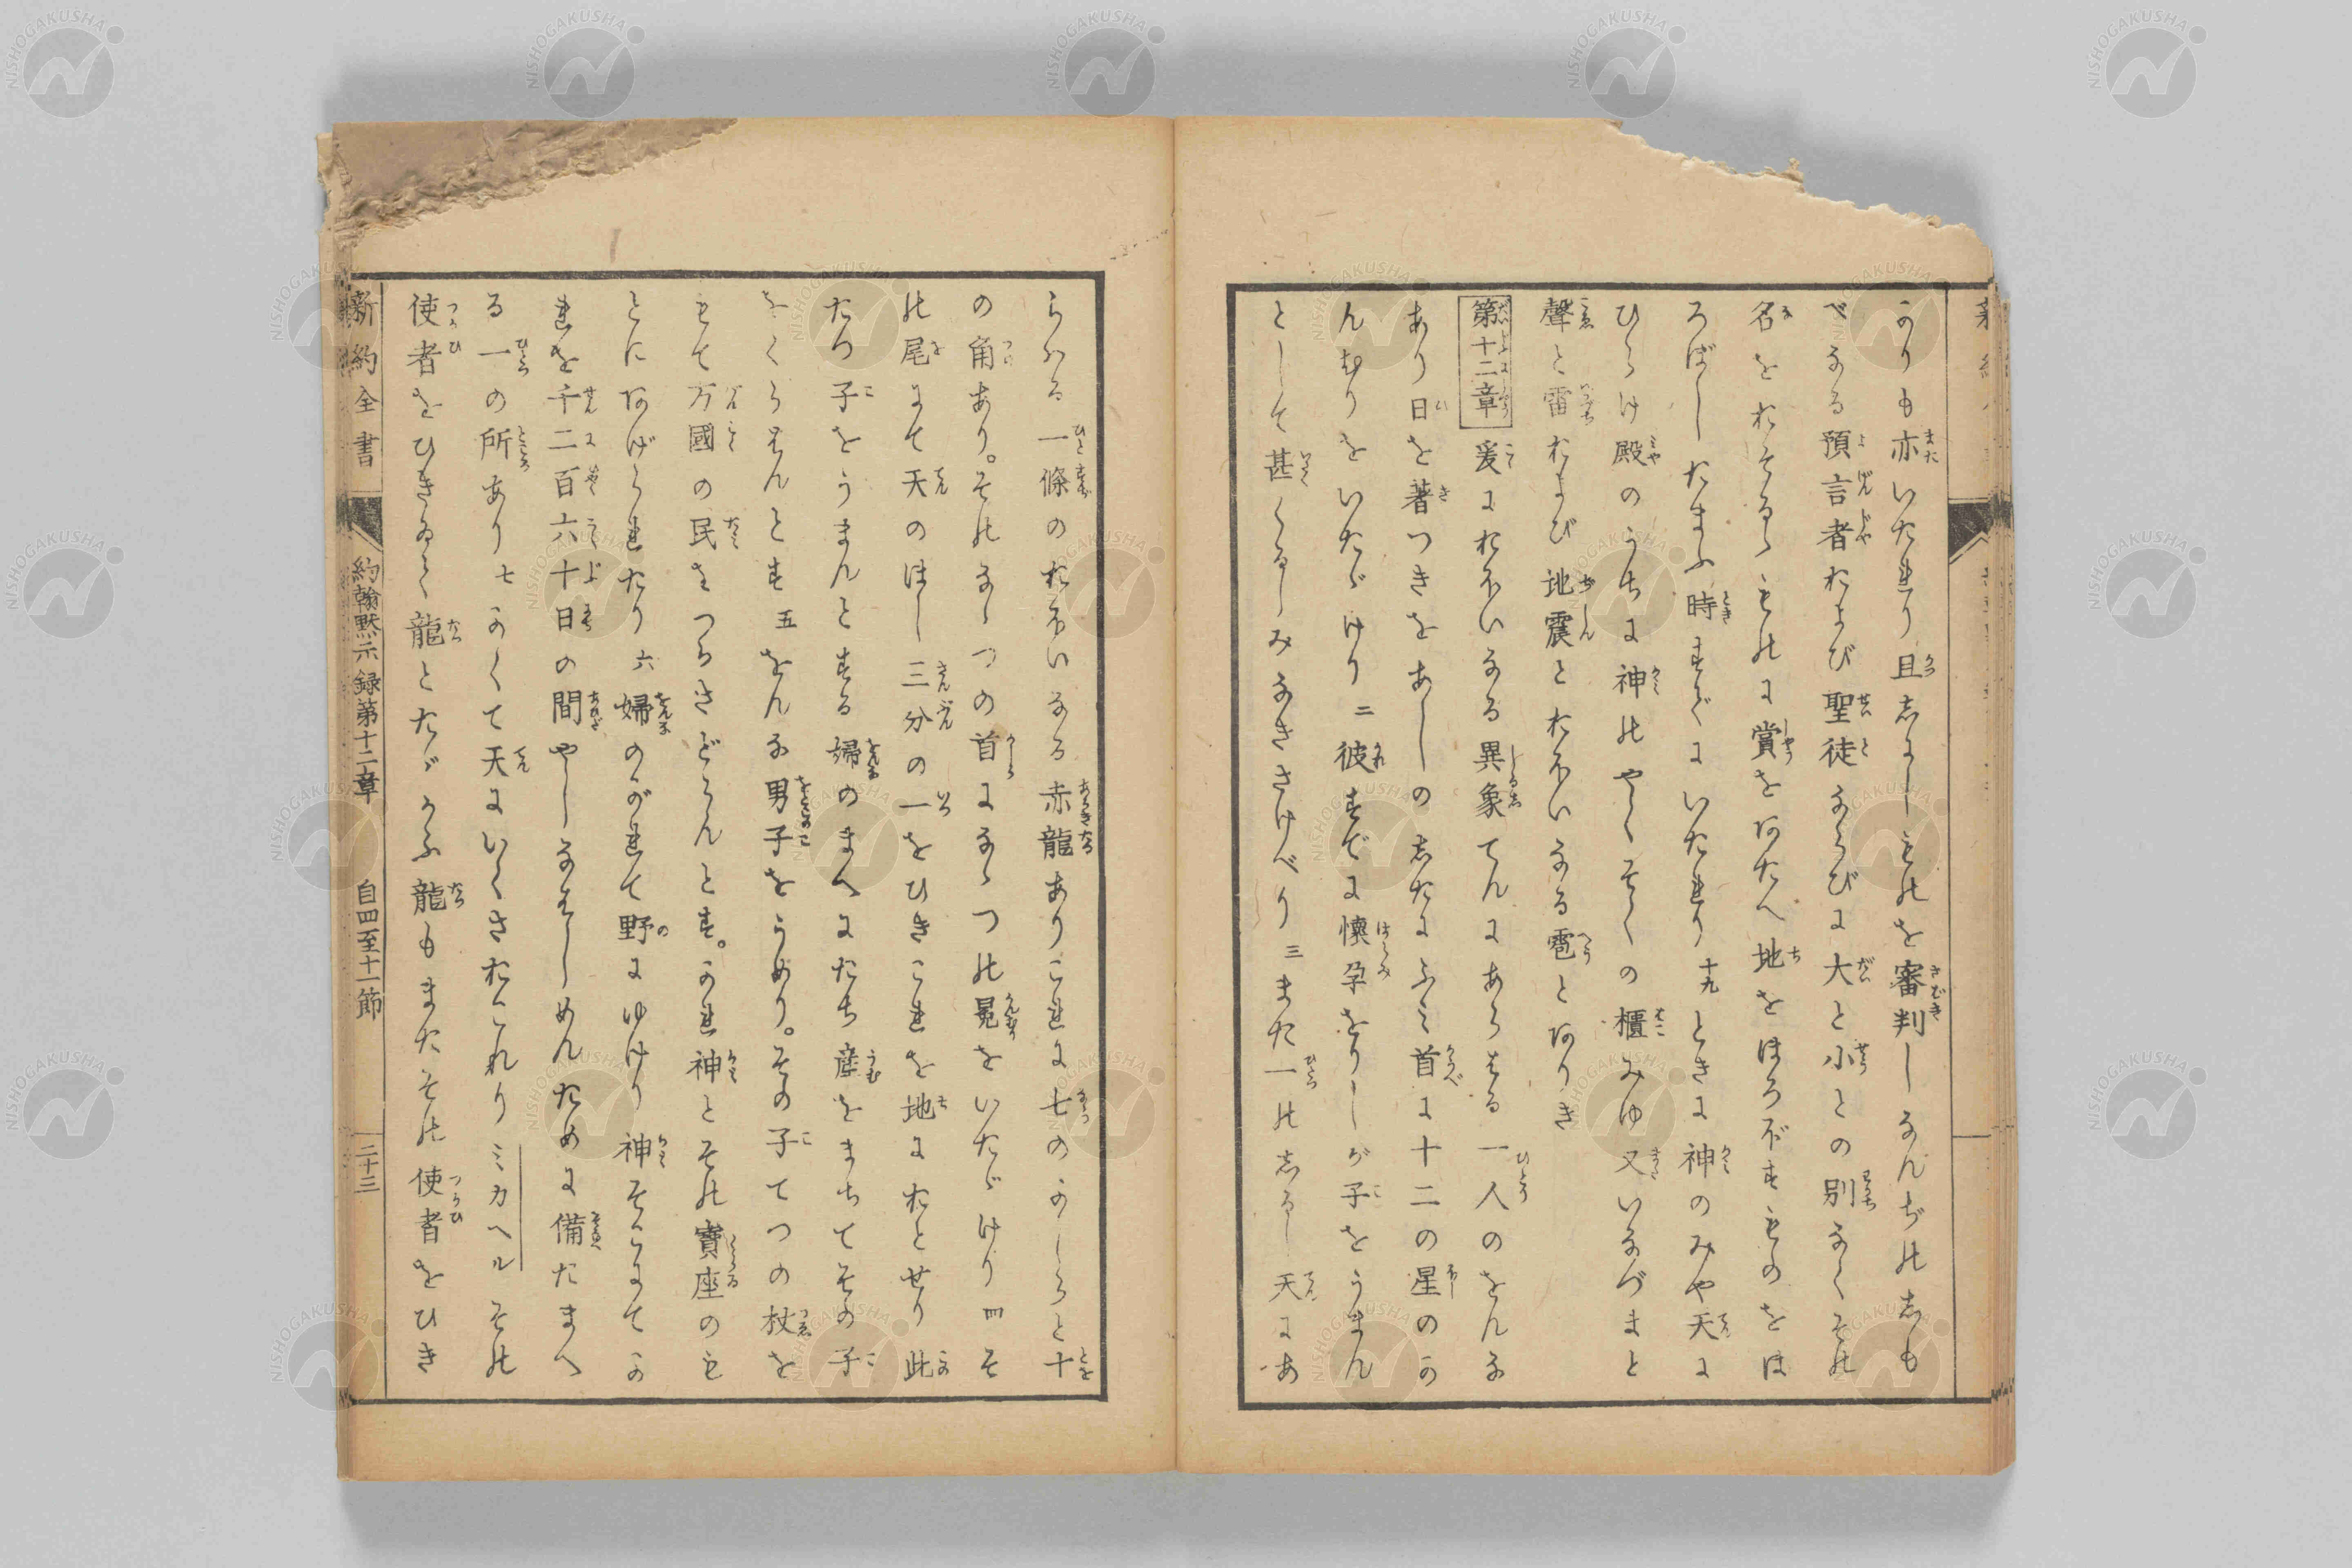 かりも亦いたれり且志にしものを審判しなんぢの志も
べなる預言者および聖徒ならびに大と小との別なくその
名をおそるゝものに賞をあたへ地をほろぼすものをほ
ろぼしたまふ時すでにいたれり十九ときに神のみや天に
ひらけ殿のうちに神のやくそくの櫃みゆ又いなづまと
聲と雷および地震とおほいなる雹とありき
第十二章爰におほいなる異象てんにあらはる一人のをんな
あり日を著つきをあしの志たにふミ首に十二の星のか
んむりをいたゞけり二彼すでに懐孕をりしが子をうまん
として甚くるしみなきさけべり三また一の志るし天にあ
らハる一條のおほいなる赤龍ありこれに七のかしらと十
の角あり。そのなゝつの首になゝつの冕をいたゞけり四そ
の尾にて天のほし三分の一をひきこれを地におとせり此
たつ子をうまんとする婦のまへにたち産をまちてその子
をくらはんとす五をんな男子をうめり。その子てつの杖を
もて万國の民をつかさどらんとす。かれ神とその寶座のも
とにあげられたり六婦のがれて野にゆけり神そこにてか
れを千二百六十日の間やしなはしめんために備たまへ
る一の所あり七かくて天にいくさおこれりミカヘルその
使者をひきゐて龍とたゝかふ龍もまたその使者をひき
新約全書
約翰黙示録第十二章
自四至十一節
二十三
NISHOGAKUSHA